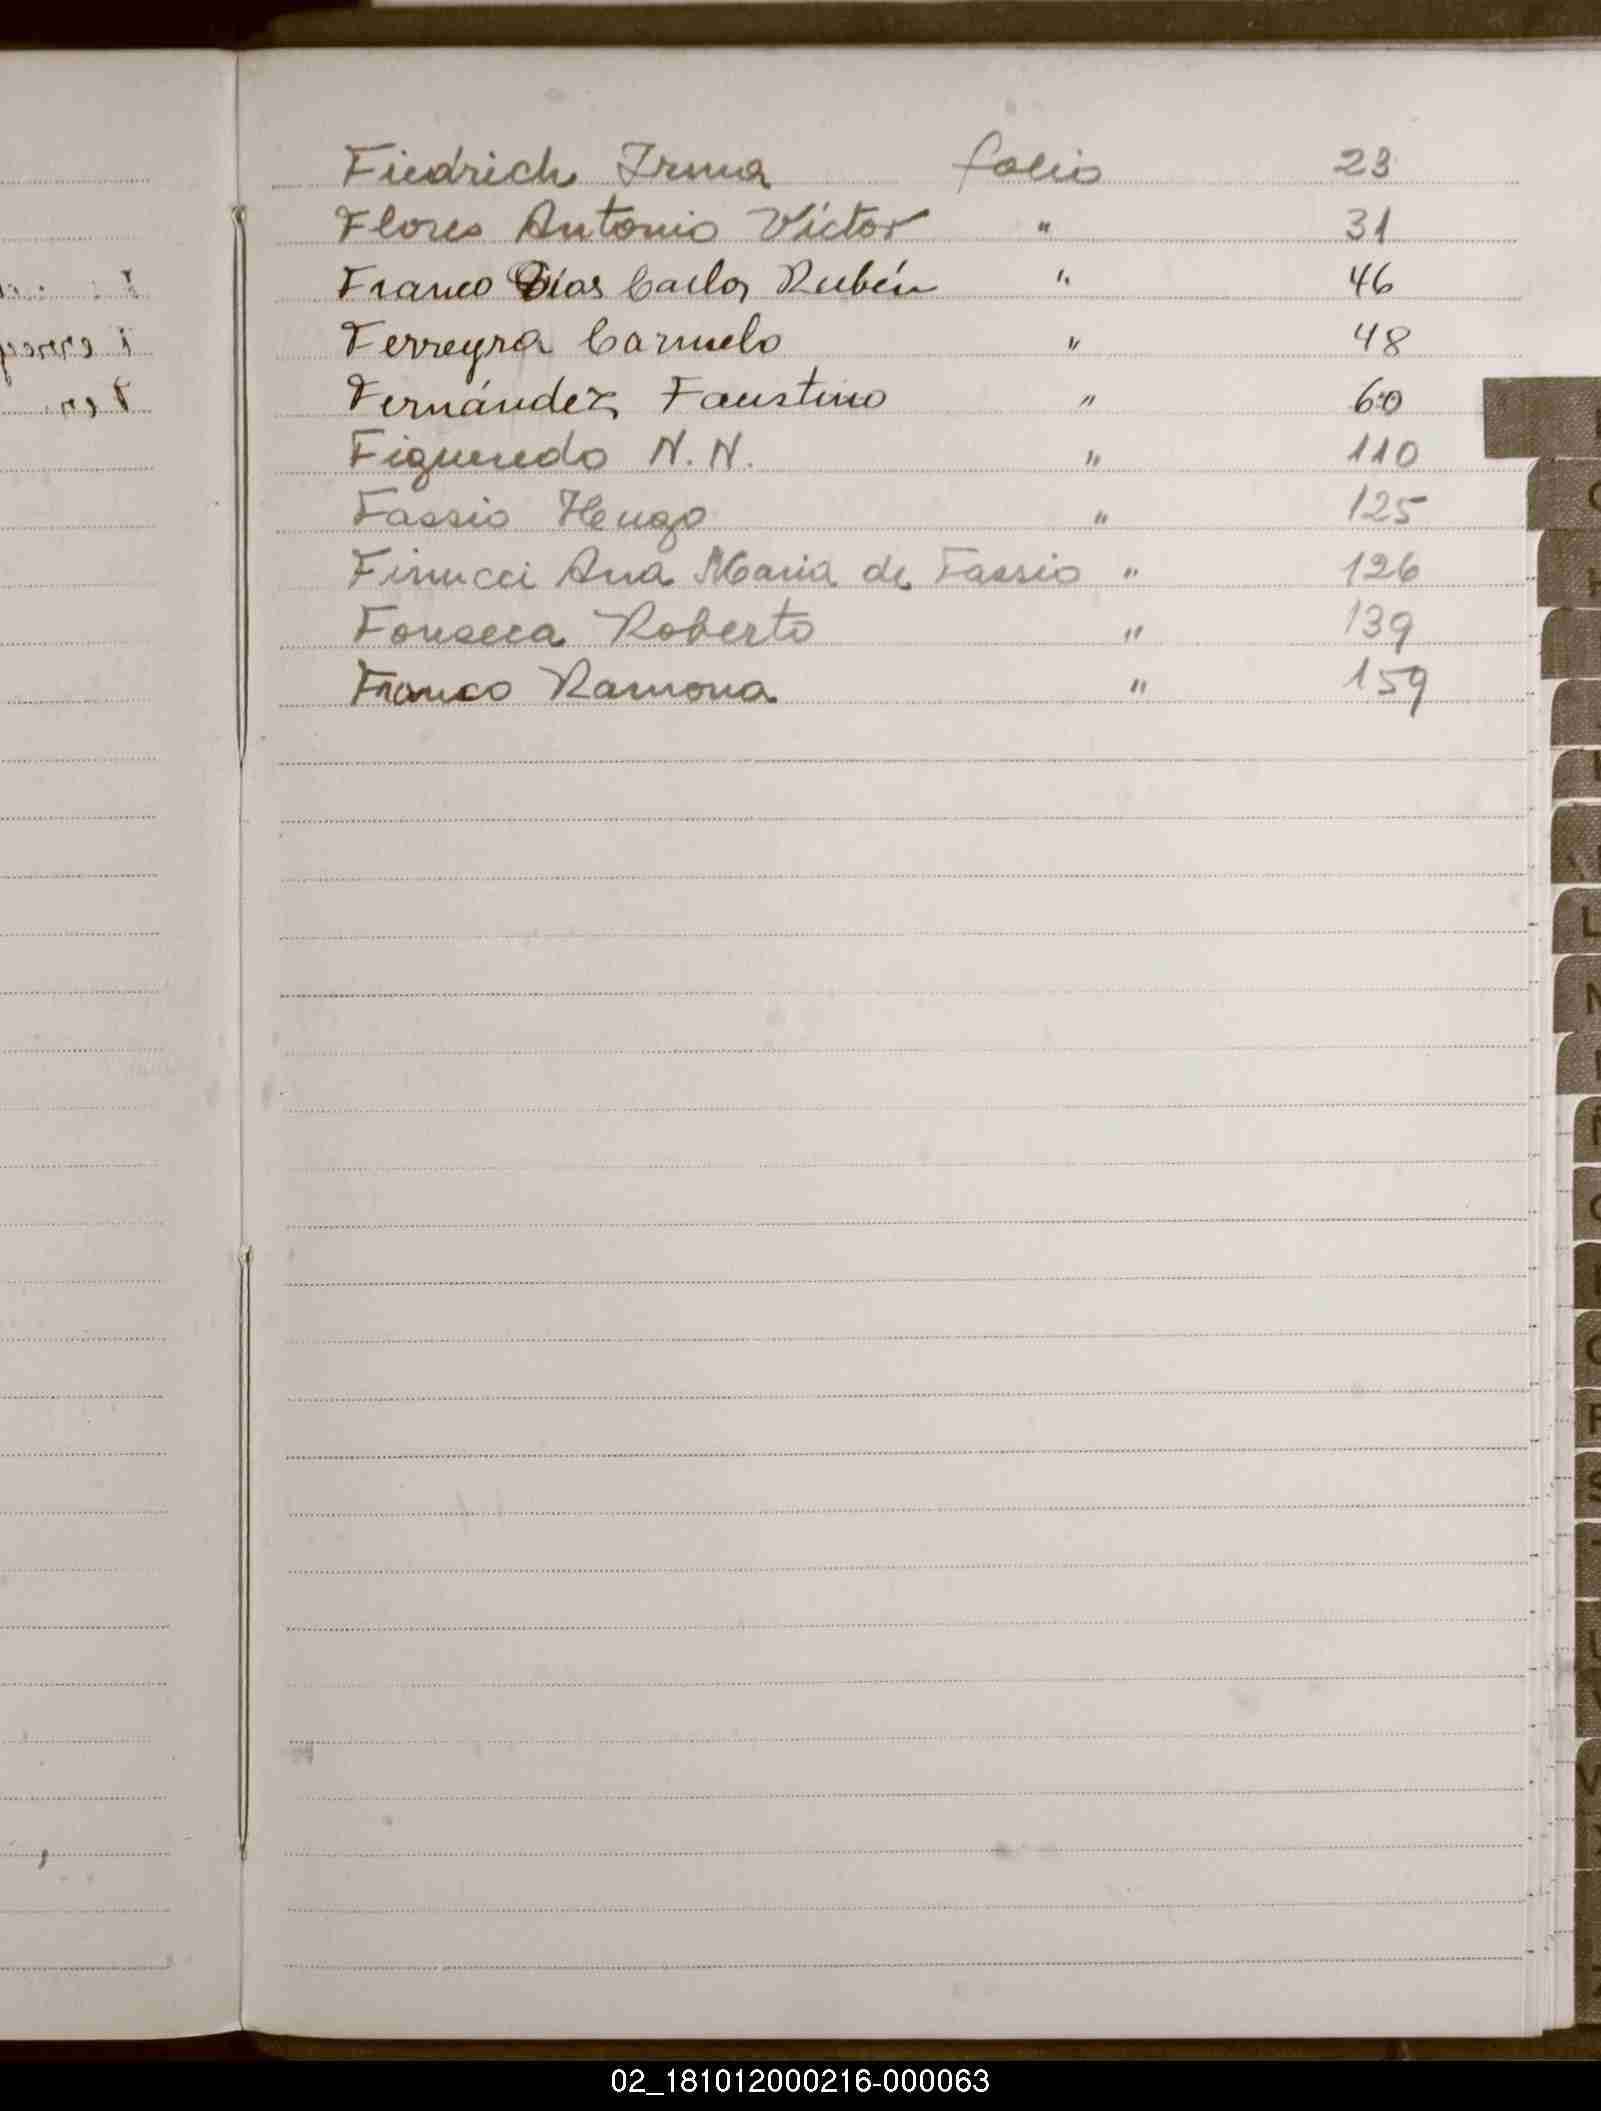 Fiedrich Irma folio 23
Flores Antonio Víctor " 31
Franco Días Carlos Rubén " 46
Ferreyra Carmelo " 48
Fernández Faustino " 60
Figueredo N.N. " 110
Fassio Hugo " 125
Finucci Ana Maria de Fassio " 126
Fonseca Roberto " 139
Franco Ramona " 159
02_181012000216-000063